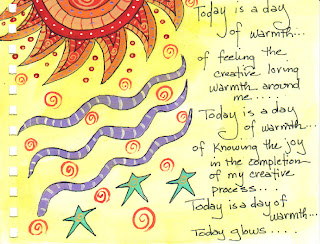 Today is a day
of warmth...
of feeling the
creative loving
warmth around
me....
Today is a day
of warmth...
of knowing the joy
in the completion
of my creative
process....
Today is a day of
warmth...
Today glows....